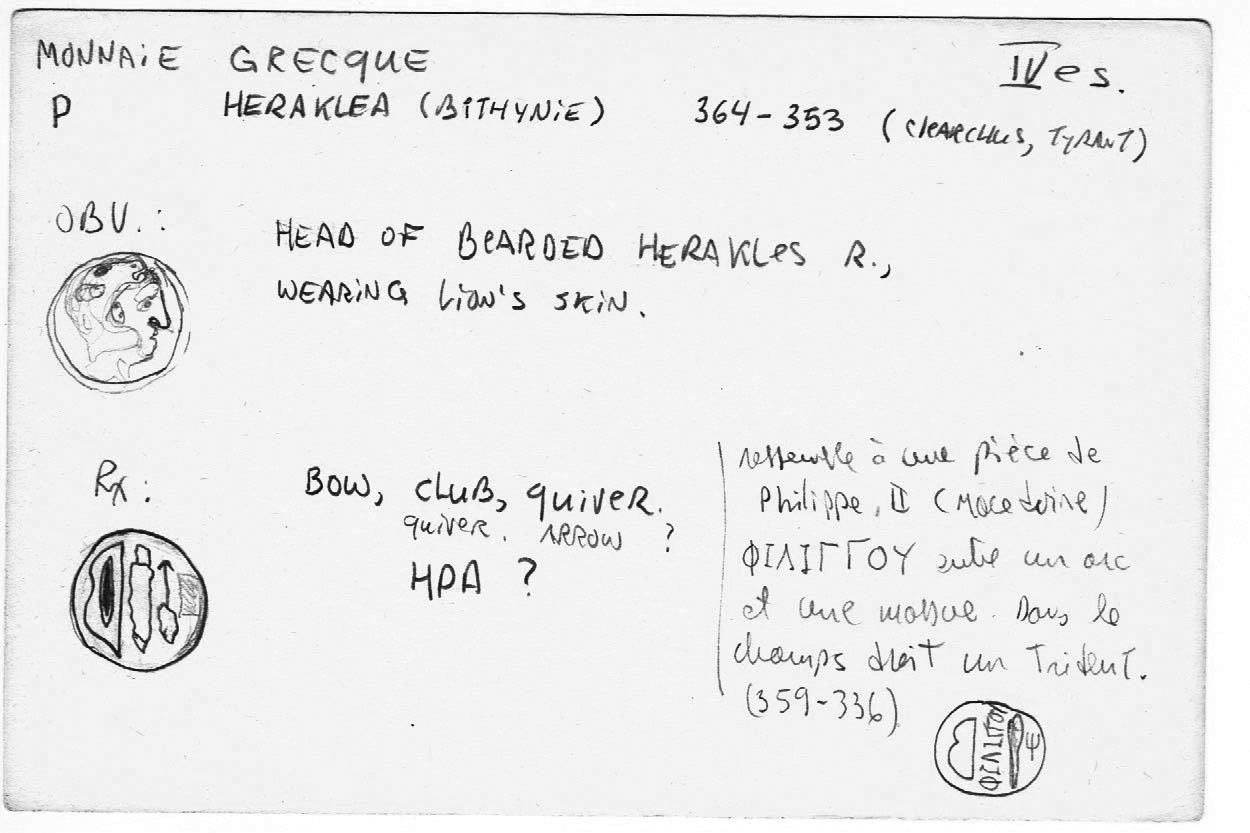 MONNAIE GRECQUE IVes.
P HERAKLEA (BITHYNIE) 364-353 (CLEARCHUS, TYRANT)
OBV.:
HEAD OF BEARDED HERAKLES R.,
WEARING LION'S SKIN.
Rx:
BOW, CLUB, QUIVER.
QUIVER. ARROW ?
HPA ?
ressemble à une pièce de
Philippe, II (Macedoine)
ΦΙΛΙΓΓΟΥ entre un arc
et une massue. Dans le
champs droit un Trident.
(359-336)
ΦΙΛΙΓΓΟΥ
Ψ